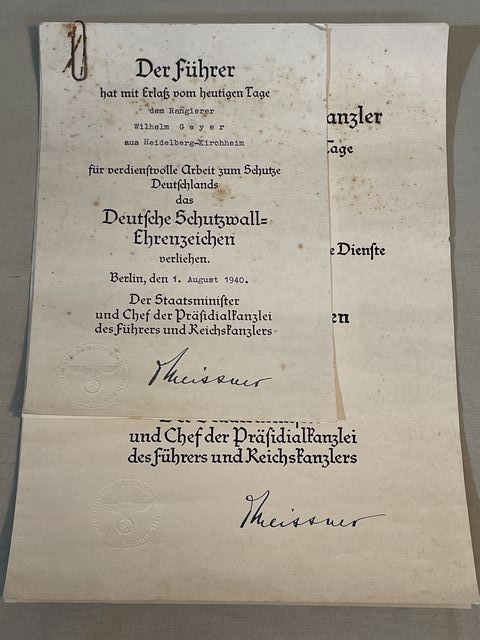 Der Führer
hat mit Erlaß vom heutigen Tage
dem Rangierer
Wilhelm Geyer
aus Heidelberg-Kirchheim
für verdienstvolle Arbeit zum Schutze
Deutschlands
das
Deutsche Schutzwall=
Ehrenzeichen
verliehen.
Berlin, den 1. August 1940.
Der Staatsminister
und Chef der Präsidialkanzlei
des Führers und Reichskanzlers
Meissner
anzler
Tage
e Dienste
en
Der Staatsminister
und Chef der Präsidialkanzlei
des Führers und Reichskanzlers
Meissner